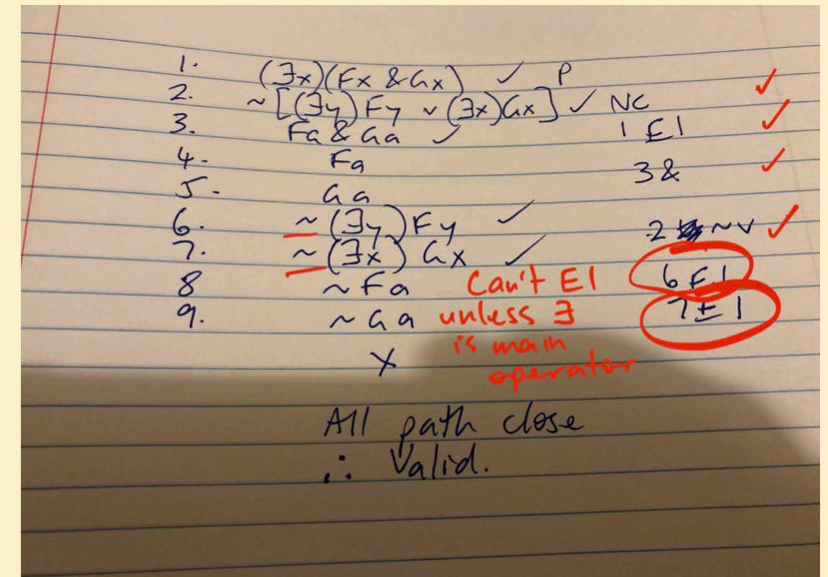 1. (∃x)(Fx & Gx) ✓ P
2. ~[(∃y)Fy ∨ (∃x)Gx] ✓ NC ✓
3. Fa & Ga ✓ 1 EI ✓
4. Fa 3& ✓
5. Ga
6. ~(∃y)Fy ✓ 2 ~∨ ✓
7. ~(∃x)Gx ✓
8 ~Fa Can't EI 6 EI
9. ~Ga unless ∃ 7 EI
is main
X operator
All path close
∴ Valid.